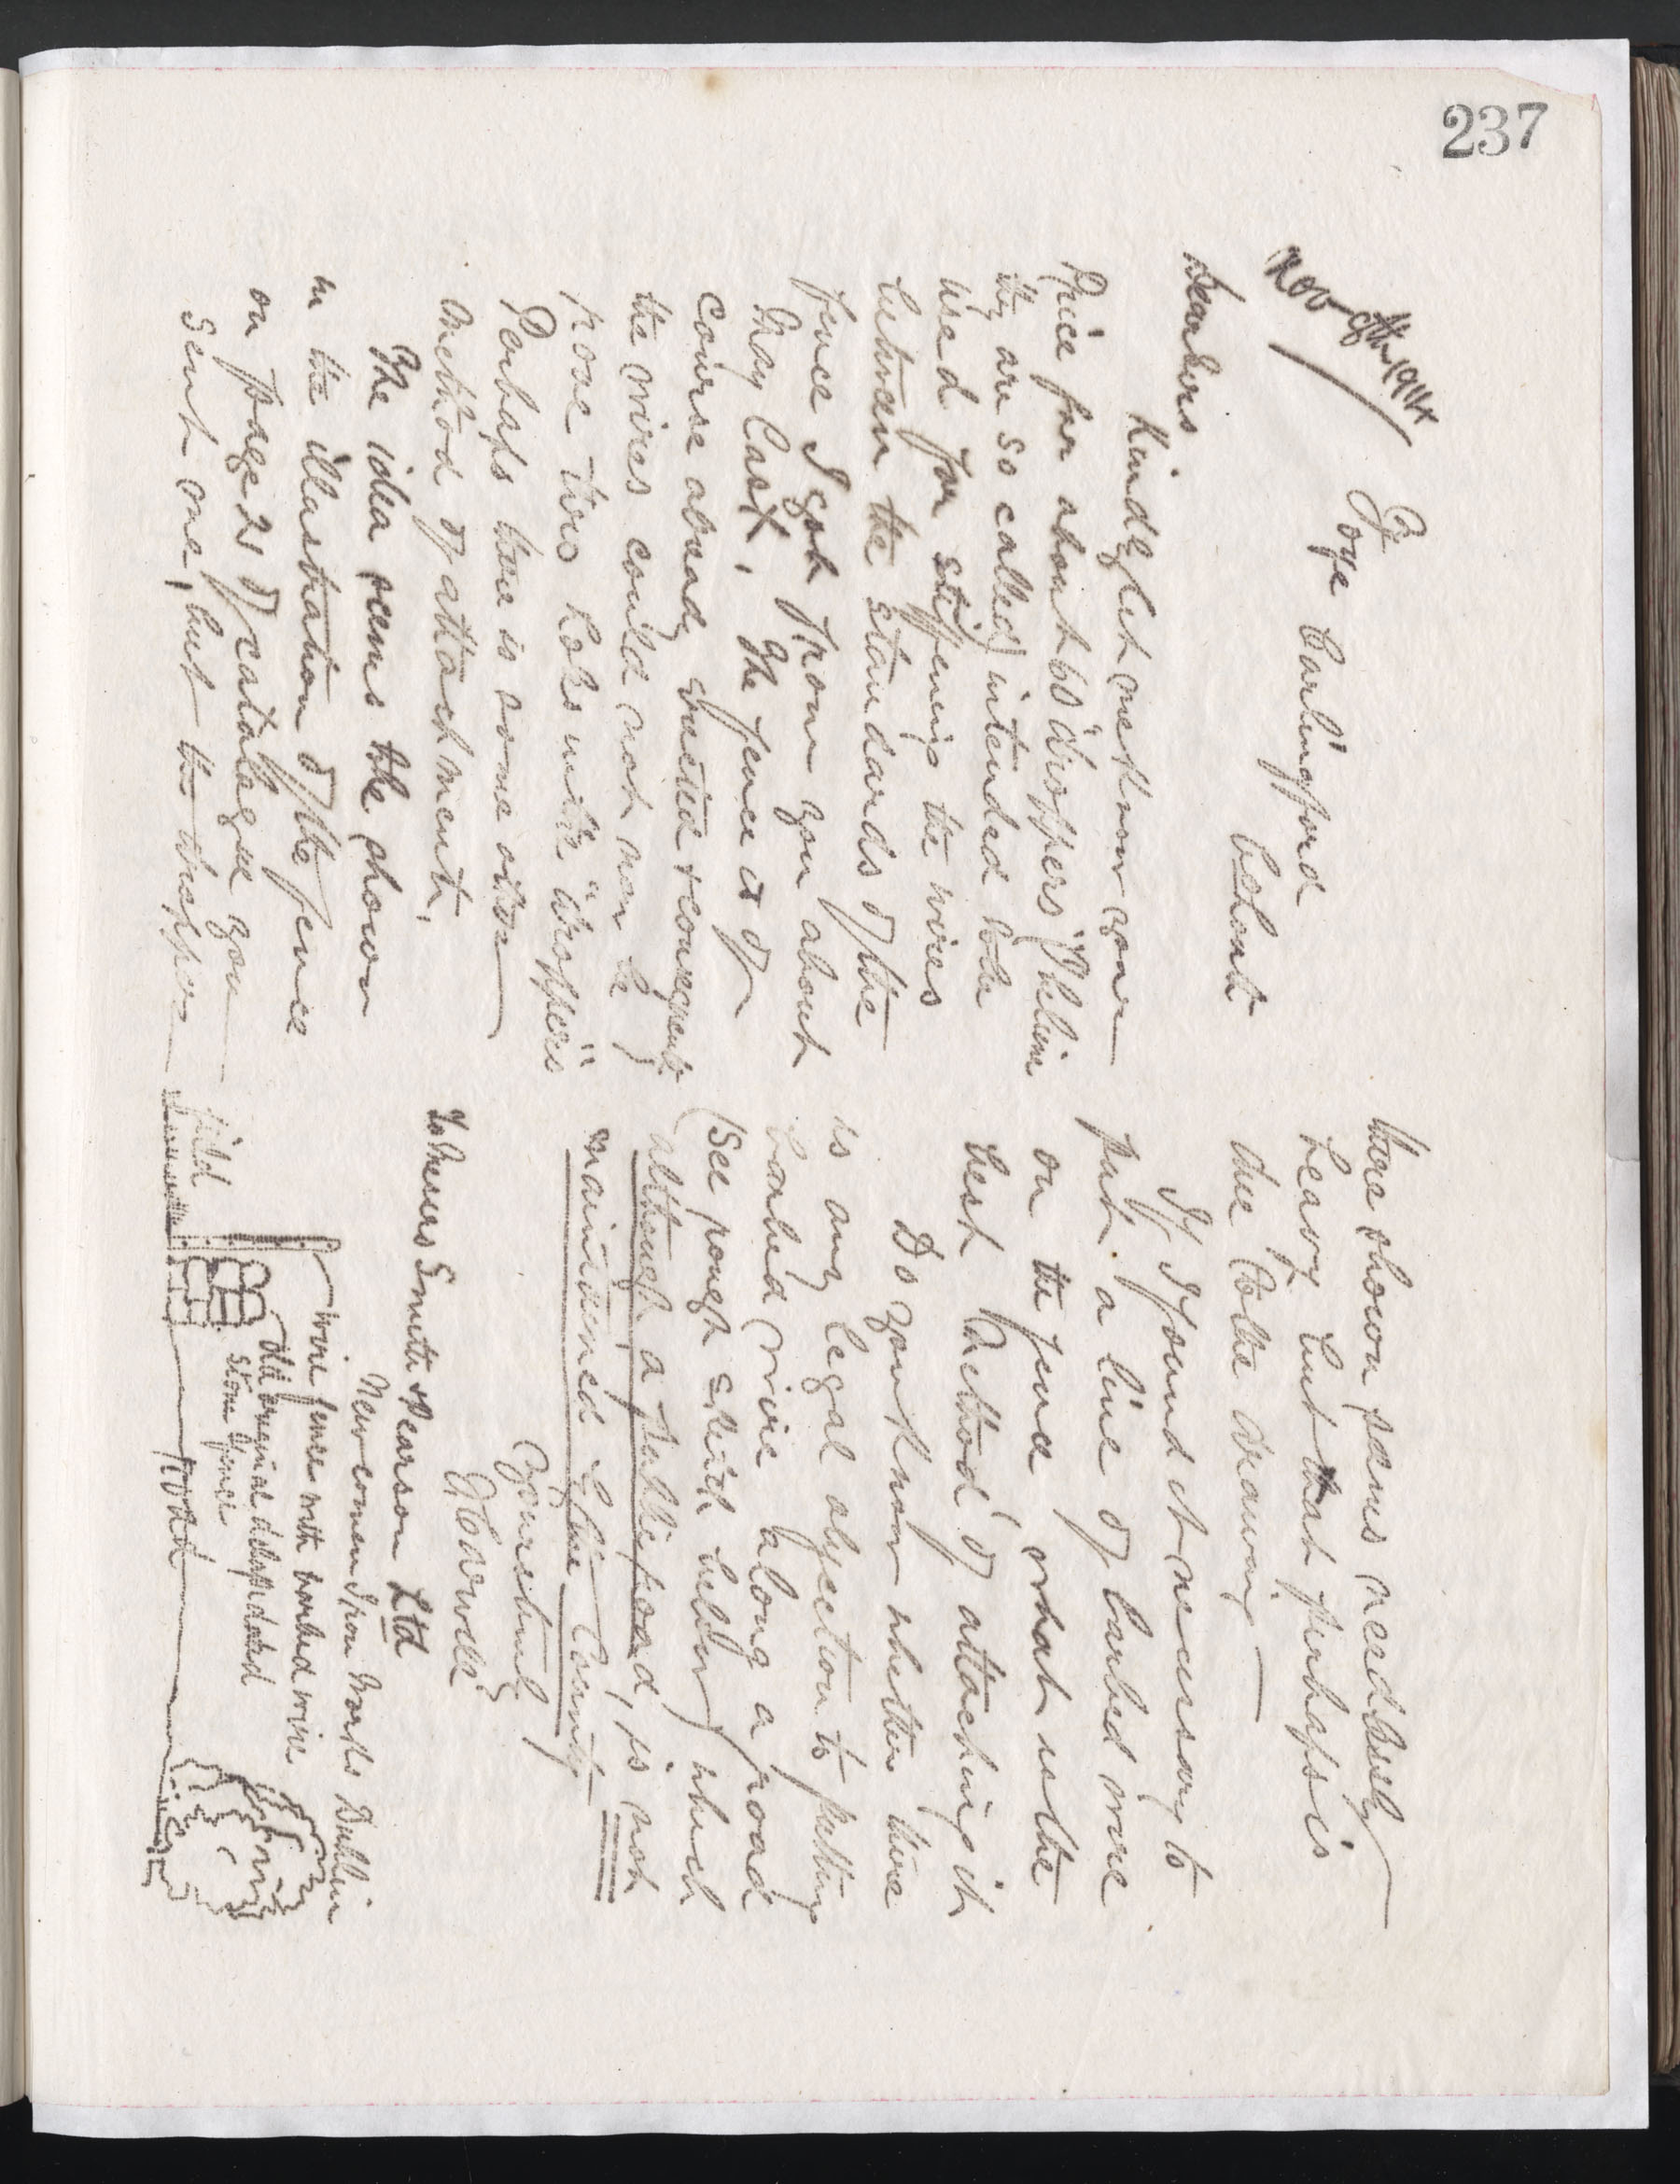 237
Nov 9th 1914
Foye Carlingford
Dear Sirs
Kindly let me know your
Price for about 60 "droppers" (I believe
they are so called) intended to be
used for stiffening the wires
between the standards of the
fence I got from you about
May last. The fence is of
course already erected & consequently
the wires could not now be
rove thro holes in the "droppers"
Perhaps there is some other
method of attachment.
The idea seems the shown
in the illustration of the fence
on page 21 of catalogue you
sent me, but the dropper
there shown seems needlessly
heavy but that perhaps is
due to the drawing
If I found it necessary to
put a line of barbed wire
on the fence what is the
best method of attaching it
Do you know whether there
is any legal objection to putting
barbed wire along a road
(see rough sketch below) which
although a public road, is not
maintained by the County
Yours truly
To Messrs Smith & Pearson Ltd
Newcomen Iron Works Dublin
wire fence with barbed wire
old original delapidated
stone fence
field
road